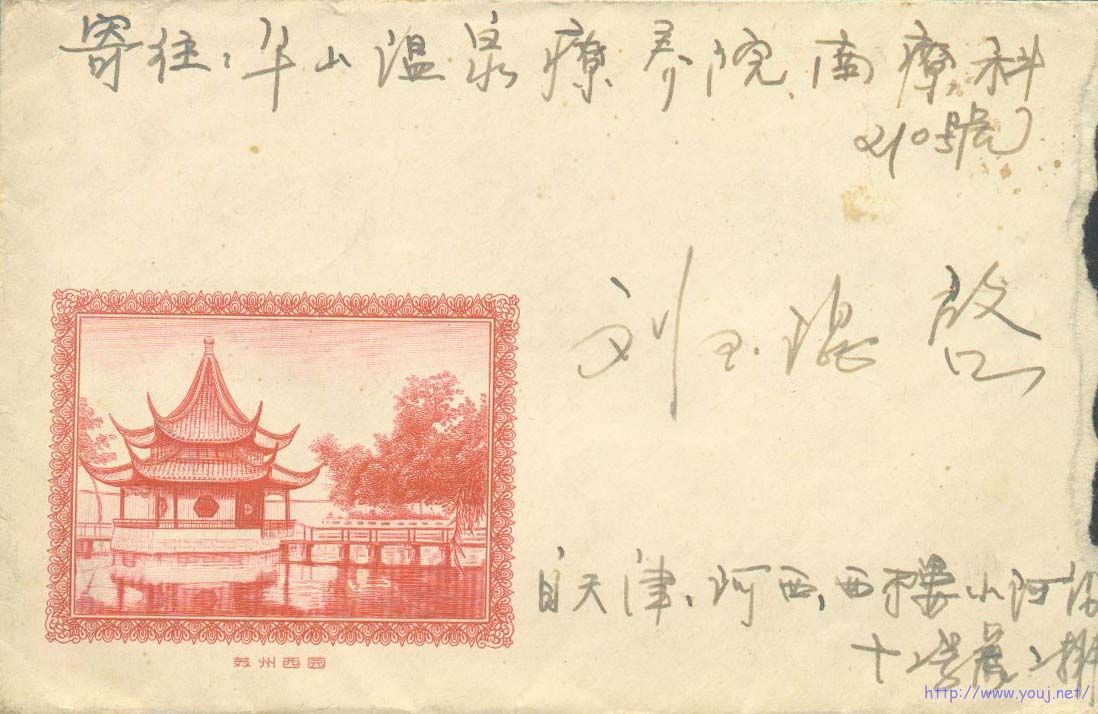 寄往：华山温泉療养院南療科
210号號
刘玉琨 啟
苏州西园
自天津、河西、西樓小河沿
十二号房二排
http://www.youj.net/